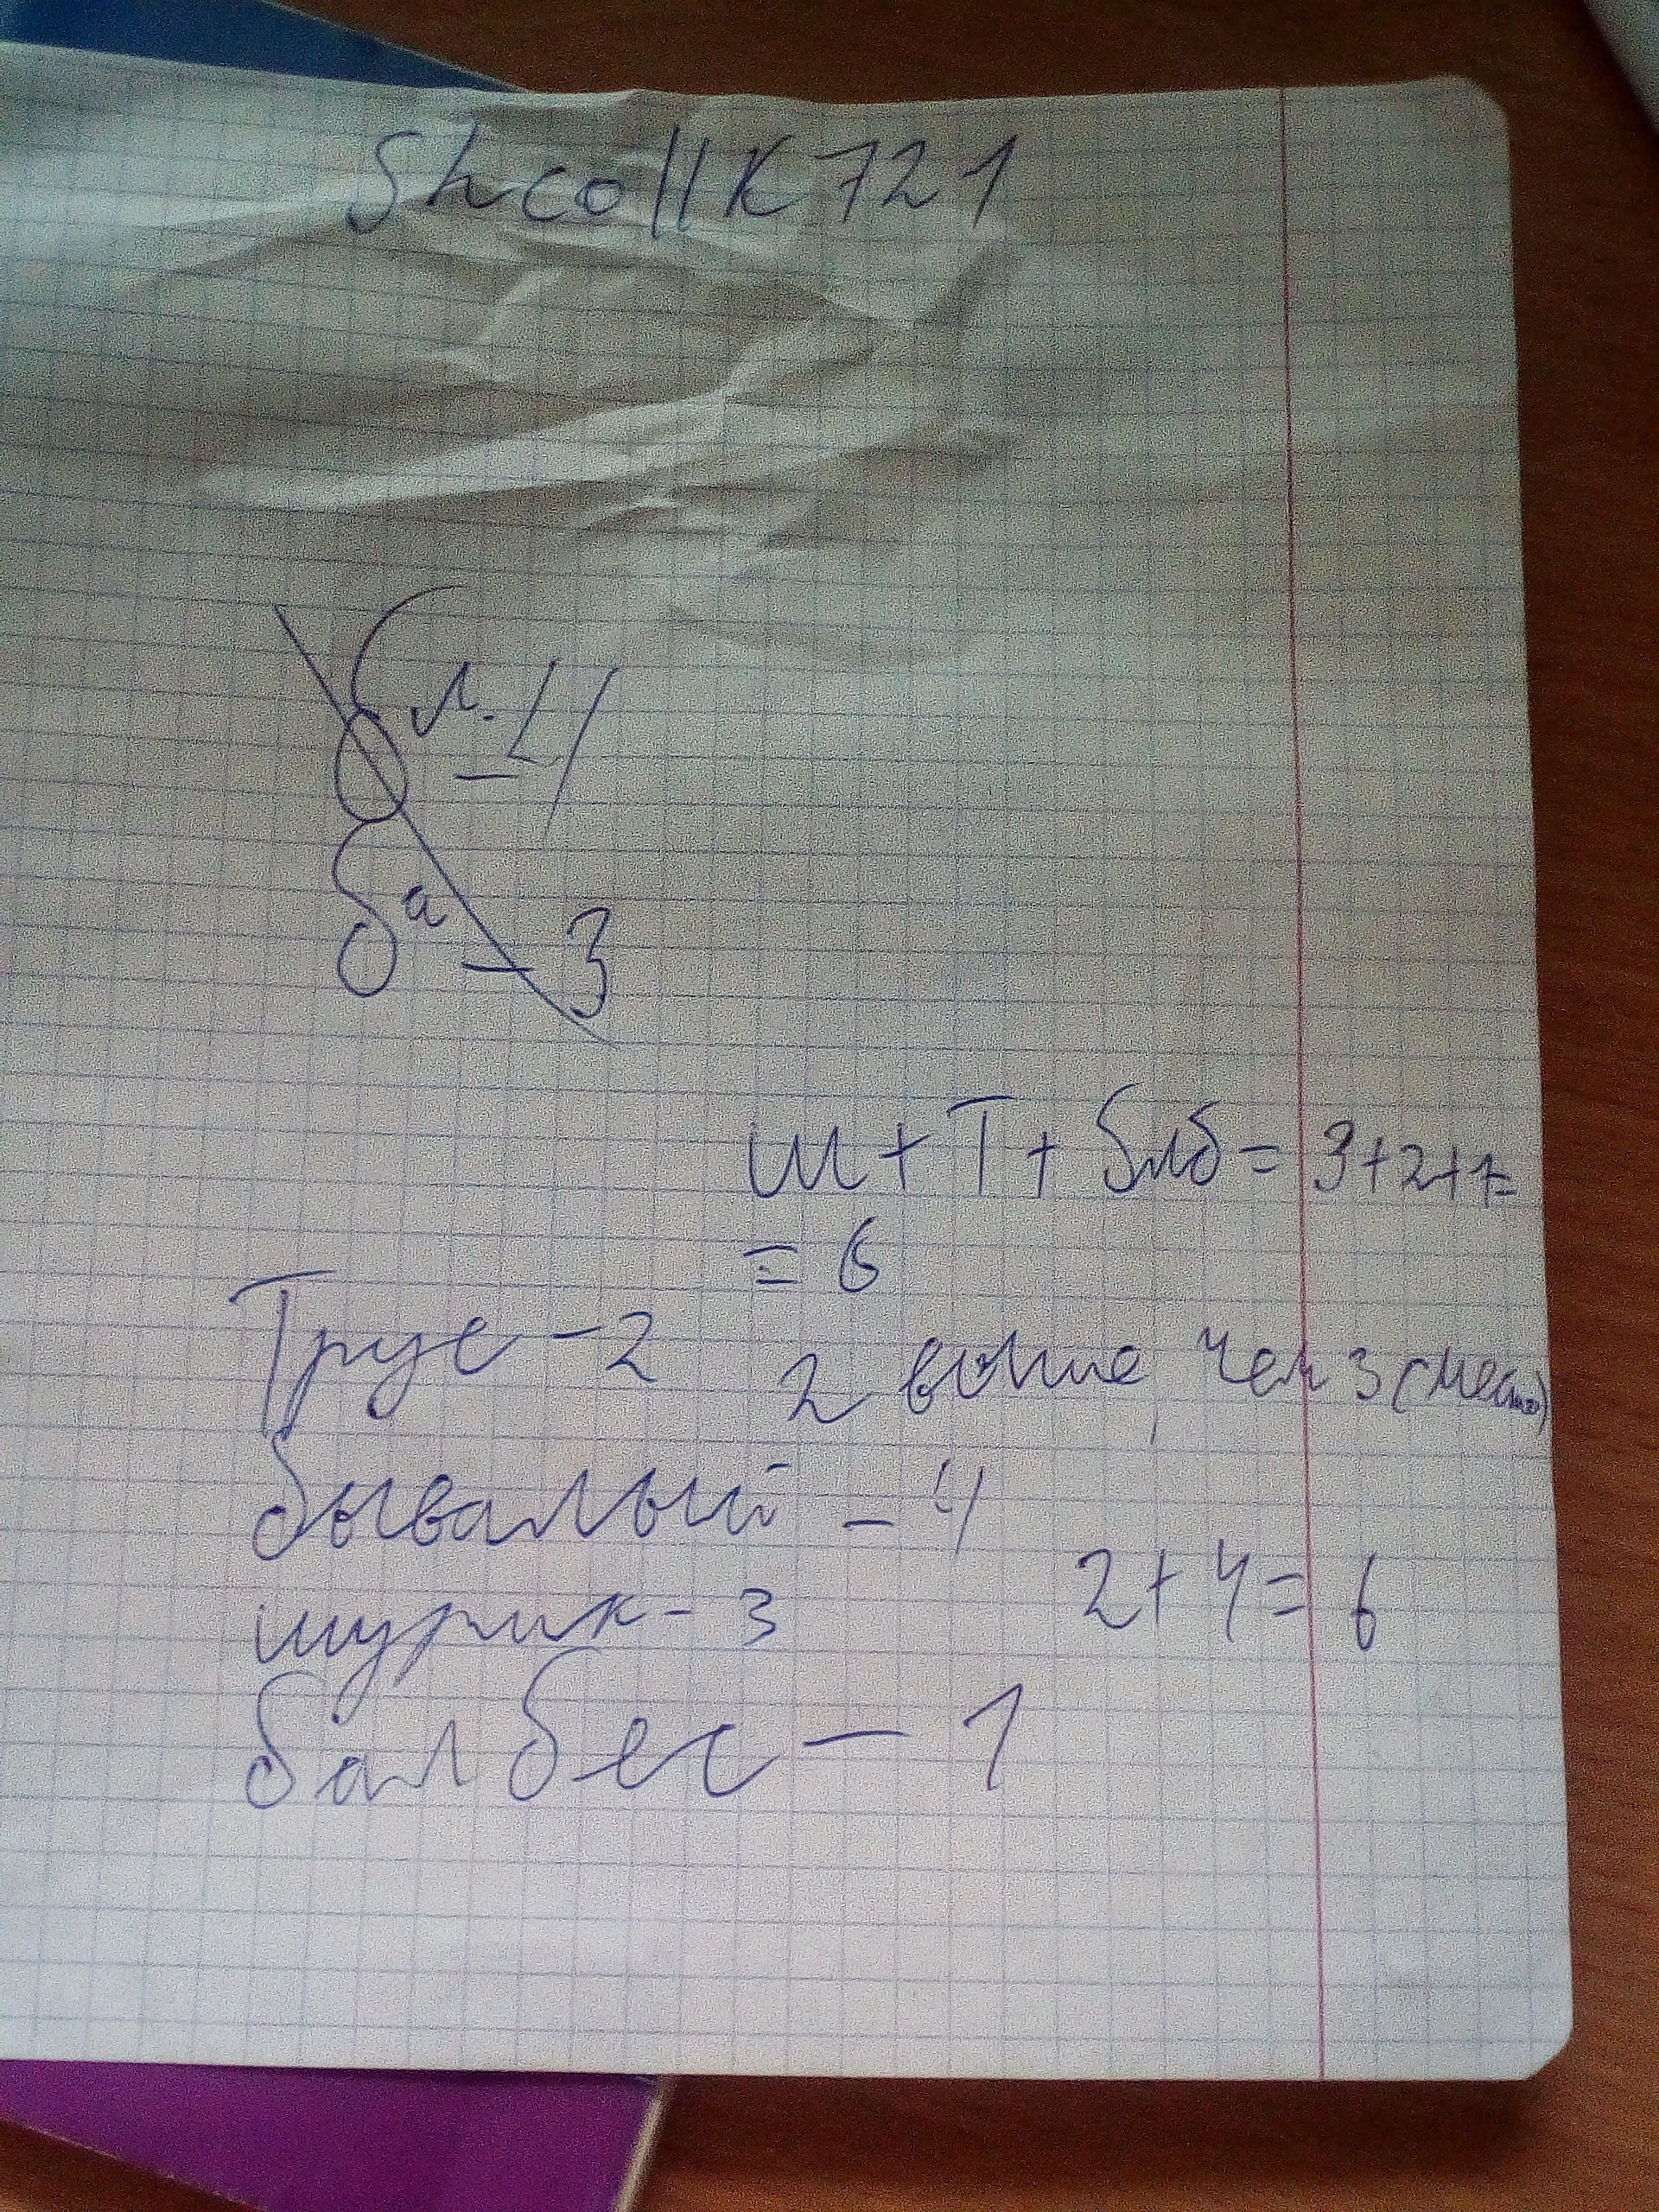 ShcollK721
бл. - 4
ба - 3
Ш + Т +Блб = 3+2+1=
= 6
Трус - 2
2 выше, чем 3 (место)
бывалый - 4
2+4= 6
шурик - 3
балбес - 1